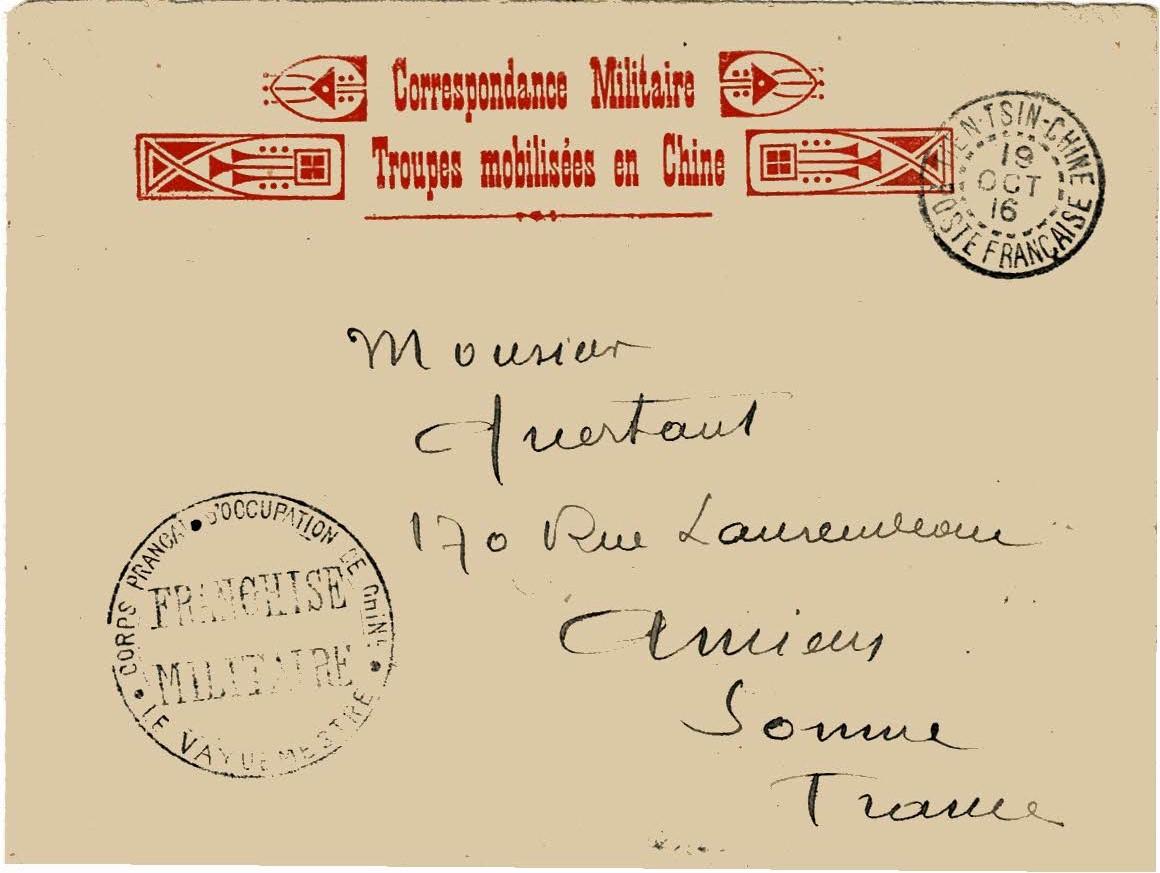 Correspondance Militaire
Troupes mobilisées en Chine
TIEN-TSIN-CHINE
19
OCT
16
POSTE FRANÇAISE
Monsieur
Quertant
170 Rue Laurendeau
Amiens
Somme
France
CORPS FRANÇAIS D'OCCUPATION DE CHINE
FRANCHISE
MILITAIRE
LE VAGUEMESTRE